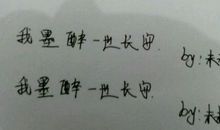 我墨醉一世长留.
by:未
我墨醉一世长留.
by:未